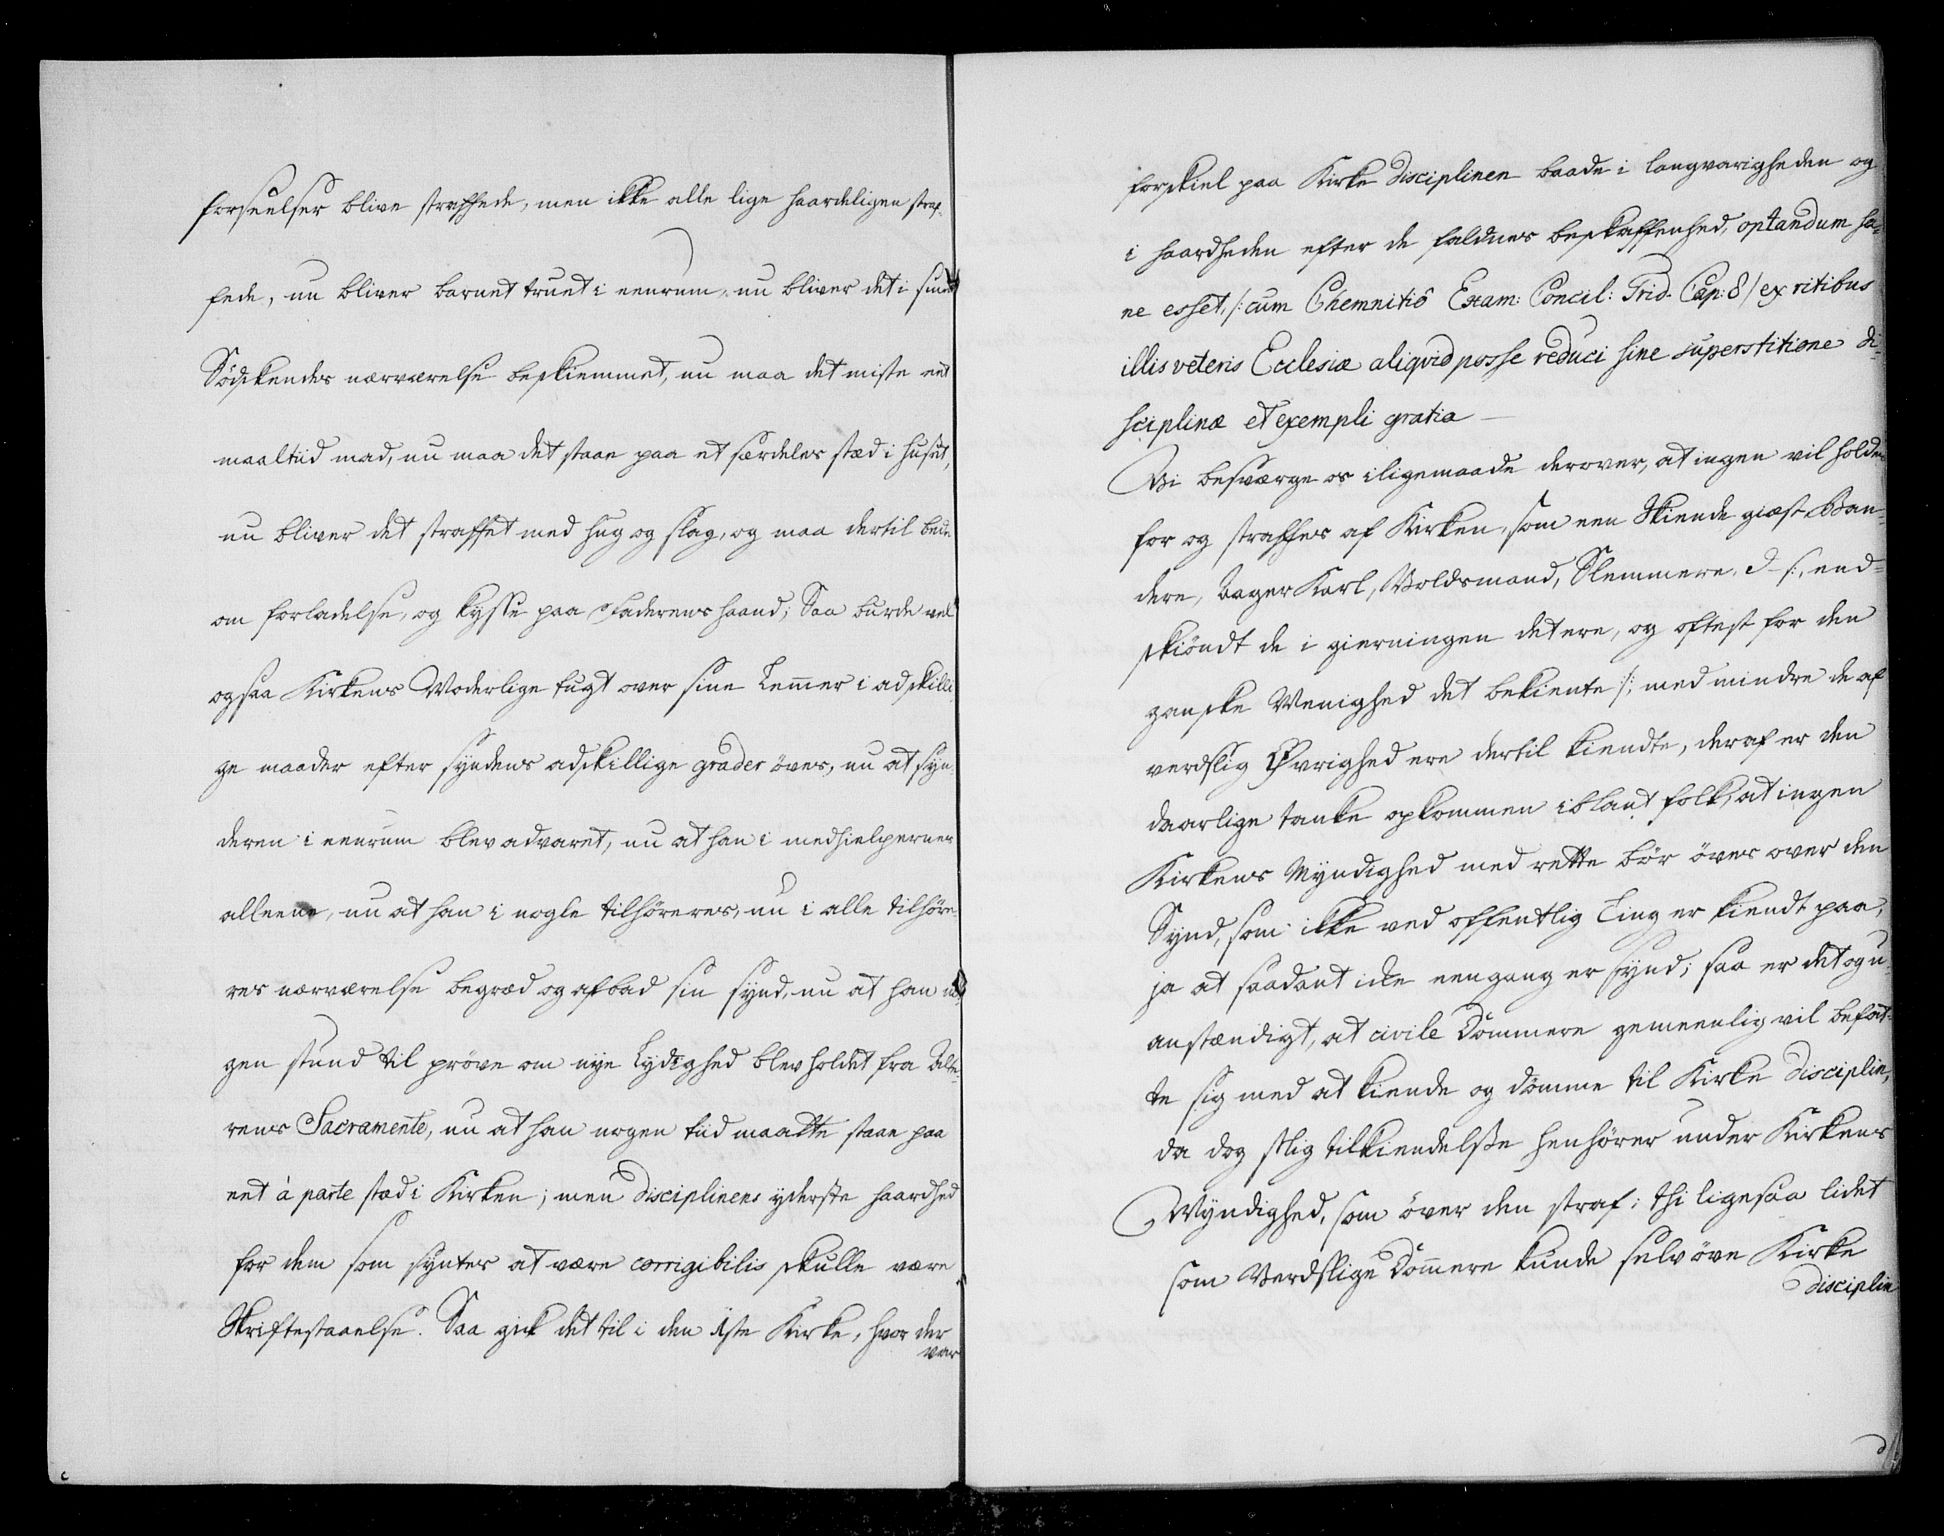 forseelser blive straffede, men ikke alle lige haardeligen straf-
fede, nu bliver barnet truet i eenrum, nu bliver det i sine
Södskendes nærværelse beskiemmet, nu maa det miste eet
maaltiid mad, nu maa det staae paa et særdeles stæd i huset,
nu bliver det straffet med hug og slag, og maa dertil bede
om forladelse, og kysse paa Faderens haand; Saa burde vel
ogsaa Kirkens Moderlige tugt over sine Lemmer i adskilli-
ge maader efter syndens adskillige grader öves, nu at syn-
deren i eenrum blev advaret, nu at han i medhielpernes
alleene, nu at han i nogle tilhöreres, nu i alle tilhöre-
res nærværelse begræd og afbad sin synd, nu at han no-
gen stund til pröve om nye Lydighed blev holdet fra Alte-
rens Sacramente, nu at han nogen tiid maatte staae paa
eet à parte stæd i Kirken; men disciplinens yderste haardhed
for dem som syntes at være corrigibilis skulle være
Skriftestaaelse. Saa gick det til i den 1ste Kirke, hvor der
var
forskiel paa Kirke disciplinen baade i langvarigheden og
i haardheden efter de faldnes beskaffenhed, optandum sa-
ne esset, /: cum Chemnitiô Exam: Concil: Trid. Cap: 8 / ex ritibus
illis veteris Ecclesiæ aliqvid posse reduci sine superstitione di-
sciplinæ et exempli gratia —
Vi besværge os iligemaade derover, at ingen vil holdes
for og straffes af Kirken, som een Skiende giæst, Ban-
dere, Aager Karl, Voldsmand, Slemmere, /: end-
skiöndt de i gierningen det ere, og oftest for den
ganske Meenighed det bekiente :/, med mindre de af
verdslig Øvrighed ere dertil kiendte, deraf er den
daarlige tanke opkommen iblant folk, at ingen
Kirkens Myndighed med rette bör öves over den
Synd, som ikke ved offentlig Ting er kiendt paa,
ja at saadant icke eengang er synd; saa er det og u-
anstændigt, at civile Dommere gemeenlig vil befat-
te sig med at kiende og dömme til Kirke disciplin,
da dog slig tilkiendelse henhörer under Kirkens
Myndighed, som över den straf; thi ligesaa lidet
som Verdslige Dommere kunde selv öve Kirke
disciplin